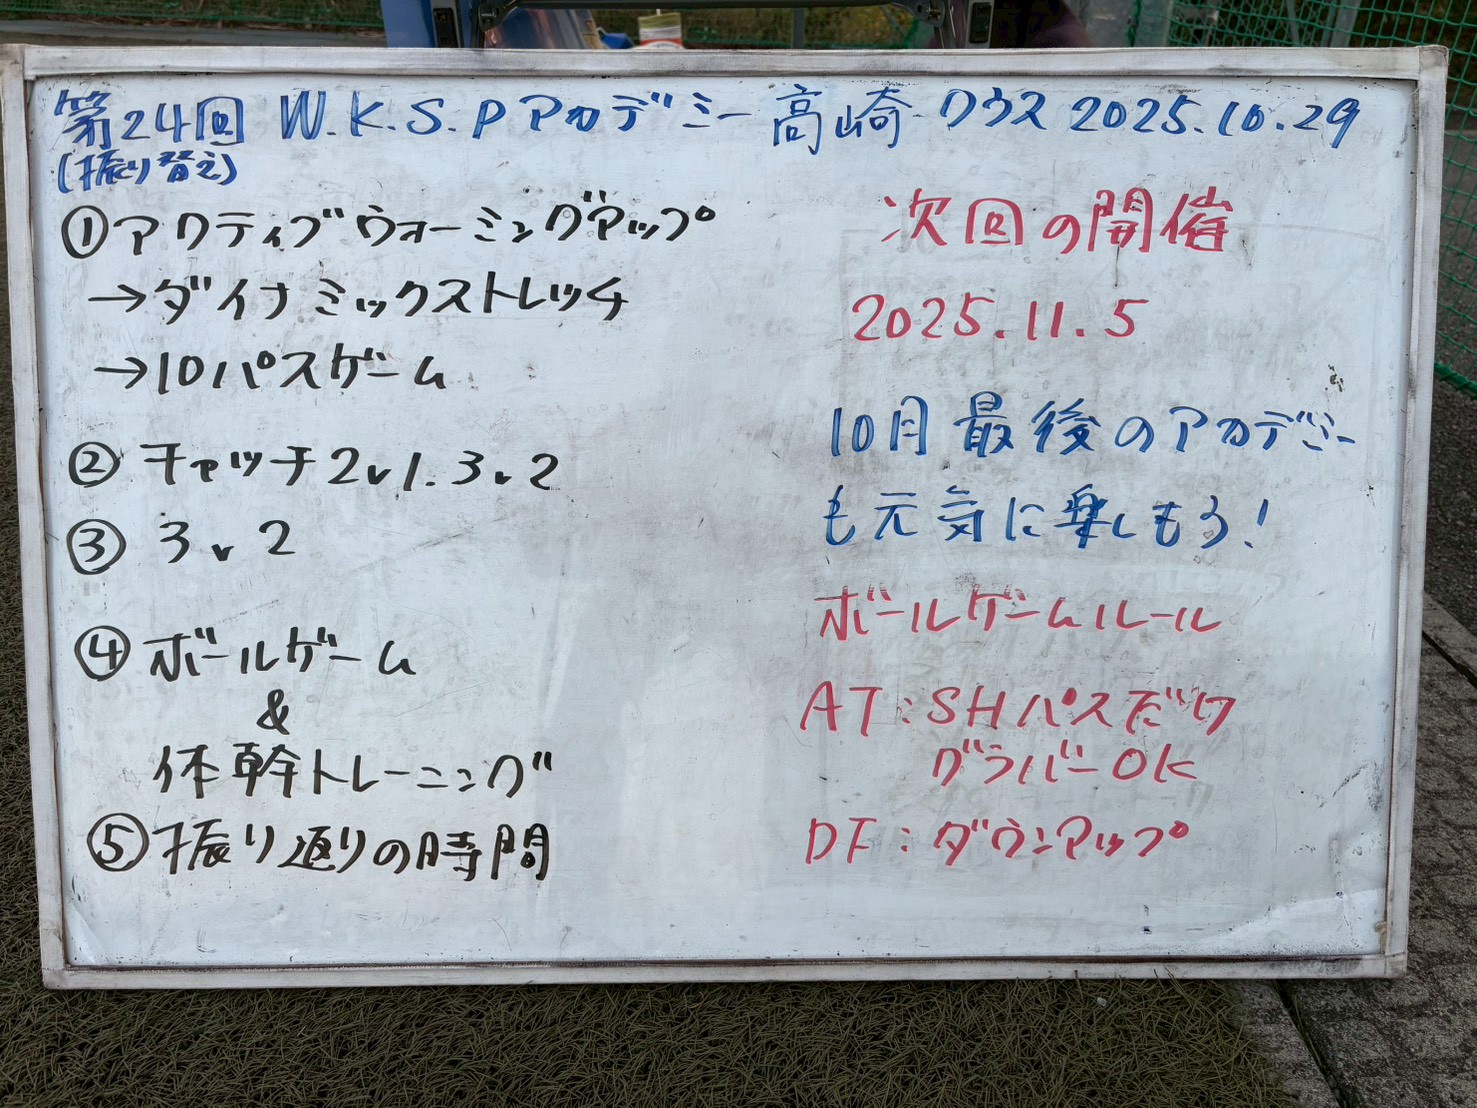 第24回 W.K.S.Pアカデミー高崎クラス 2025.10.29
(振り替え)
①アクティブウォーミングアップ
→ダイナミックストレッチ
→10パスゲーム
②チャッチ2v1.3v2
③3v2
④ボールゲーム
&
体幹トレーニング
⑤振り返りの時間
次回の開催
2025.11.5
10月最後のアカデミー
も元気に楽しもう!
ボールゲームルール
AT:SHパスだけ
グラバーOK
DF:ダウンアップ